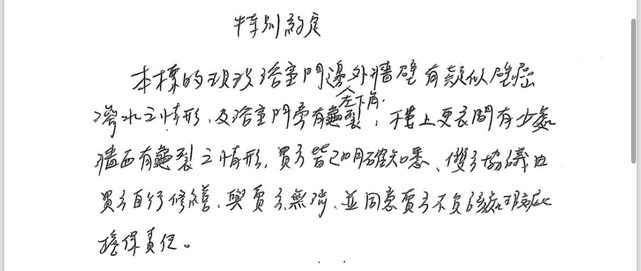 特別約定
本標的現改浴室門邊外牆壁有疑似壁癌
滲水之情形,及浴室門旁有龜裂,樓上更衣間有少處
左下角
牆面有龜裂之情形,買方皆已明確知悉、雙方協議由
買方自行修繕、與賣方無涉、並同意賣方不負該處瑕疵
擔保責任。